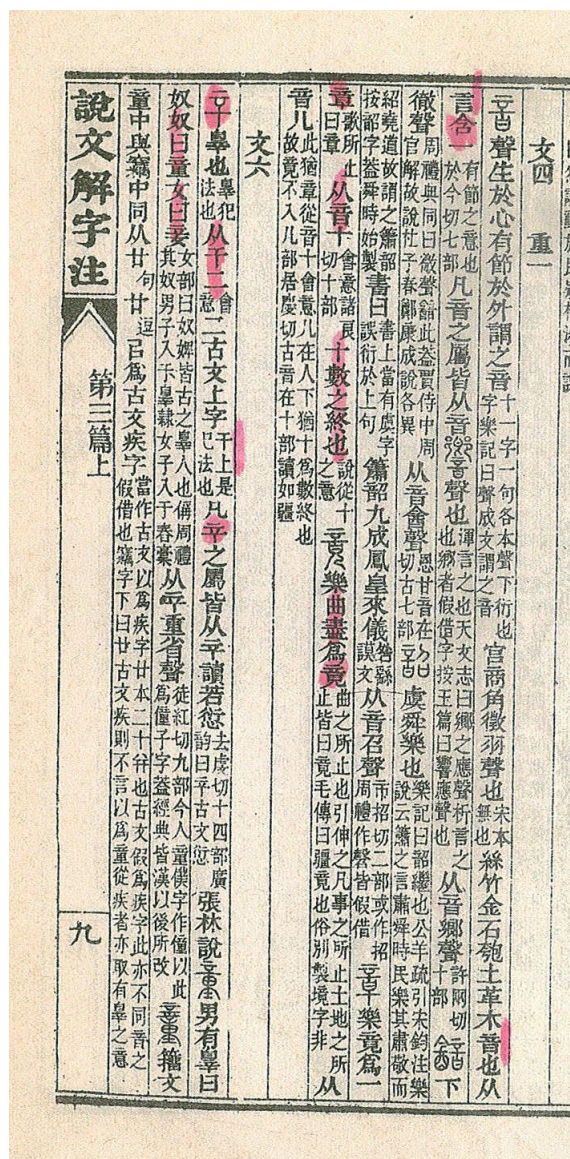 文四　重一
音聲生於心有節於外謂之音十一字一句各本聲下衍也字樂記曰聲成文謂之音宮商角徵羽聲也宋本無也絲竹金石匏土革木音也从
言含一有節之意也於今切七部凡音之屬皆从音響聲也渾言之也天文志曰鄉之應聲析言之也鄉者假借字按玉篇曰響應聲也从音鄉聲許网切十部韽下
徹聲周禮典同曰微聲韽此蓋賈侍中周官解故說杜子春鄭康成說各異从音酓聲恩甘切古音在七部韶虞舜樂也樂記曰韶繼也公羊疏引宋鈞注樂說云簫之言肅舜時民樂其肅敬而
紹堯道故謂之簫韶按韶字蓋舜時始製書曰書上當有虞字誤衍於上句簫韶九成鳳皇來儀咎繇謨文从音召聲市招切二部或作招周禮作㲈皆假借章樂竟爲一
章歌所止曰章从音十會意諸良切十部十數之終也說從十之意竟樂曲盡爲竟曲之所止也引伸之凡事之所止土地之所止皆曰竟毛傳曰疆竟也俗別製境字非从
音儿此猶章從音十會意儿在人下猶十爲數終也故竟不入儿部居慶切古音在十部讀如疆
文六
䇂辠也辠犯法也从干二會意二古文上字干上是犯法也凡䇂之屬皆从䇂讀若愆去虔切十四部廣韵曰䇂古文愆張林說童男有辠曰
奴奴曰童女曰妾女部曰奴婢皆古之辠人也偁周禮其奴男子入于辠隸女子入于舂稾从䇂重省聲徒紅切九部今人童僕字作僮以此爲僮子字蓋經典皆漢以後所改童籒文
童中與竊中同从廿句廿逗㠯爲古文疾字當作古文以爲疾字廿本二十幷也古文假爲疾字此亦不同音之假借也竊字下曰廿古文疾則不言以爲童從疾者亦取有辠之意
說文解字注　第三篇上　九